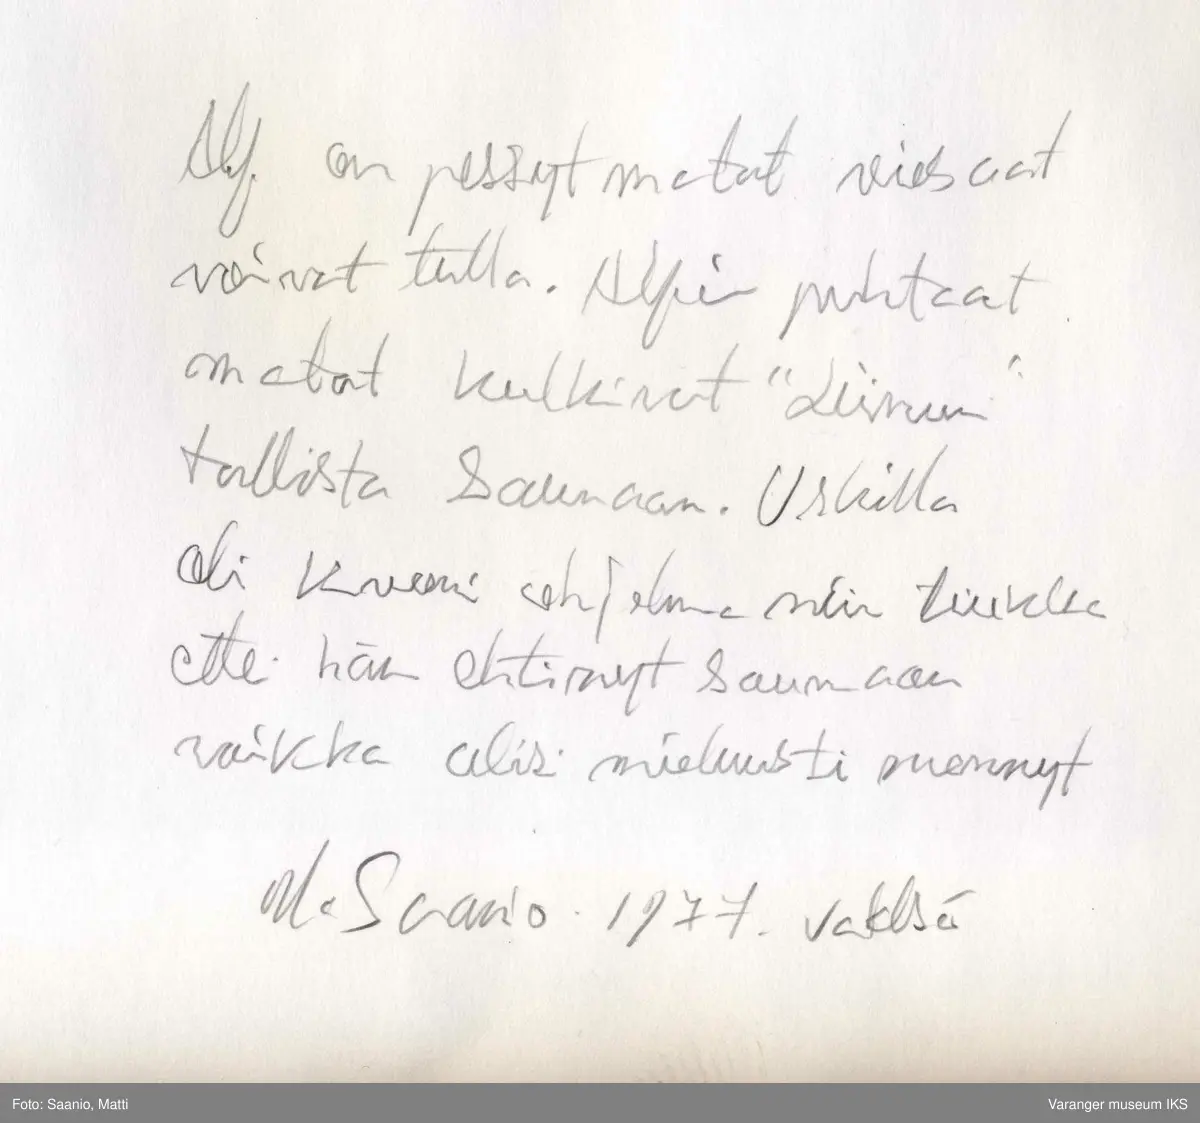 Alf on pessyt matot vieraat
voivat tulla. Alfin puhtaat
matot kulkivat "Liisun"
tallista Saunaan. Uskilla
oli kveeni ohjelma niin tiukka
ettei hän ehtinyt saunaan
vaikka olisi mieluusti mennyt
M. Saanio 1977.
Foto: Saanio, Matti
Varanger museum IKS